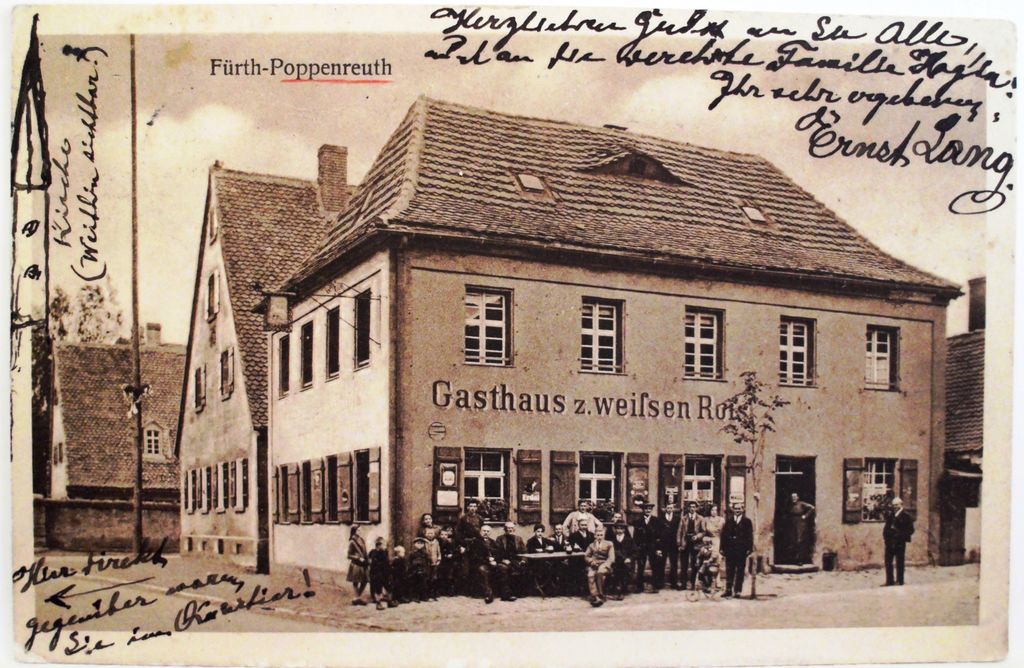 Herzlichen Gruß an Sie Alle,
und an die verehrte Familie
Ihr sehr ergebener
Ernst Lang.
Fürth-Poppenreuth
Kirche
(Weithin sichtbar!)
Gasthaus z. weiſsen Roß
Erdal
Hier direkt
gegenüber waren
Sie im Quartier!